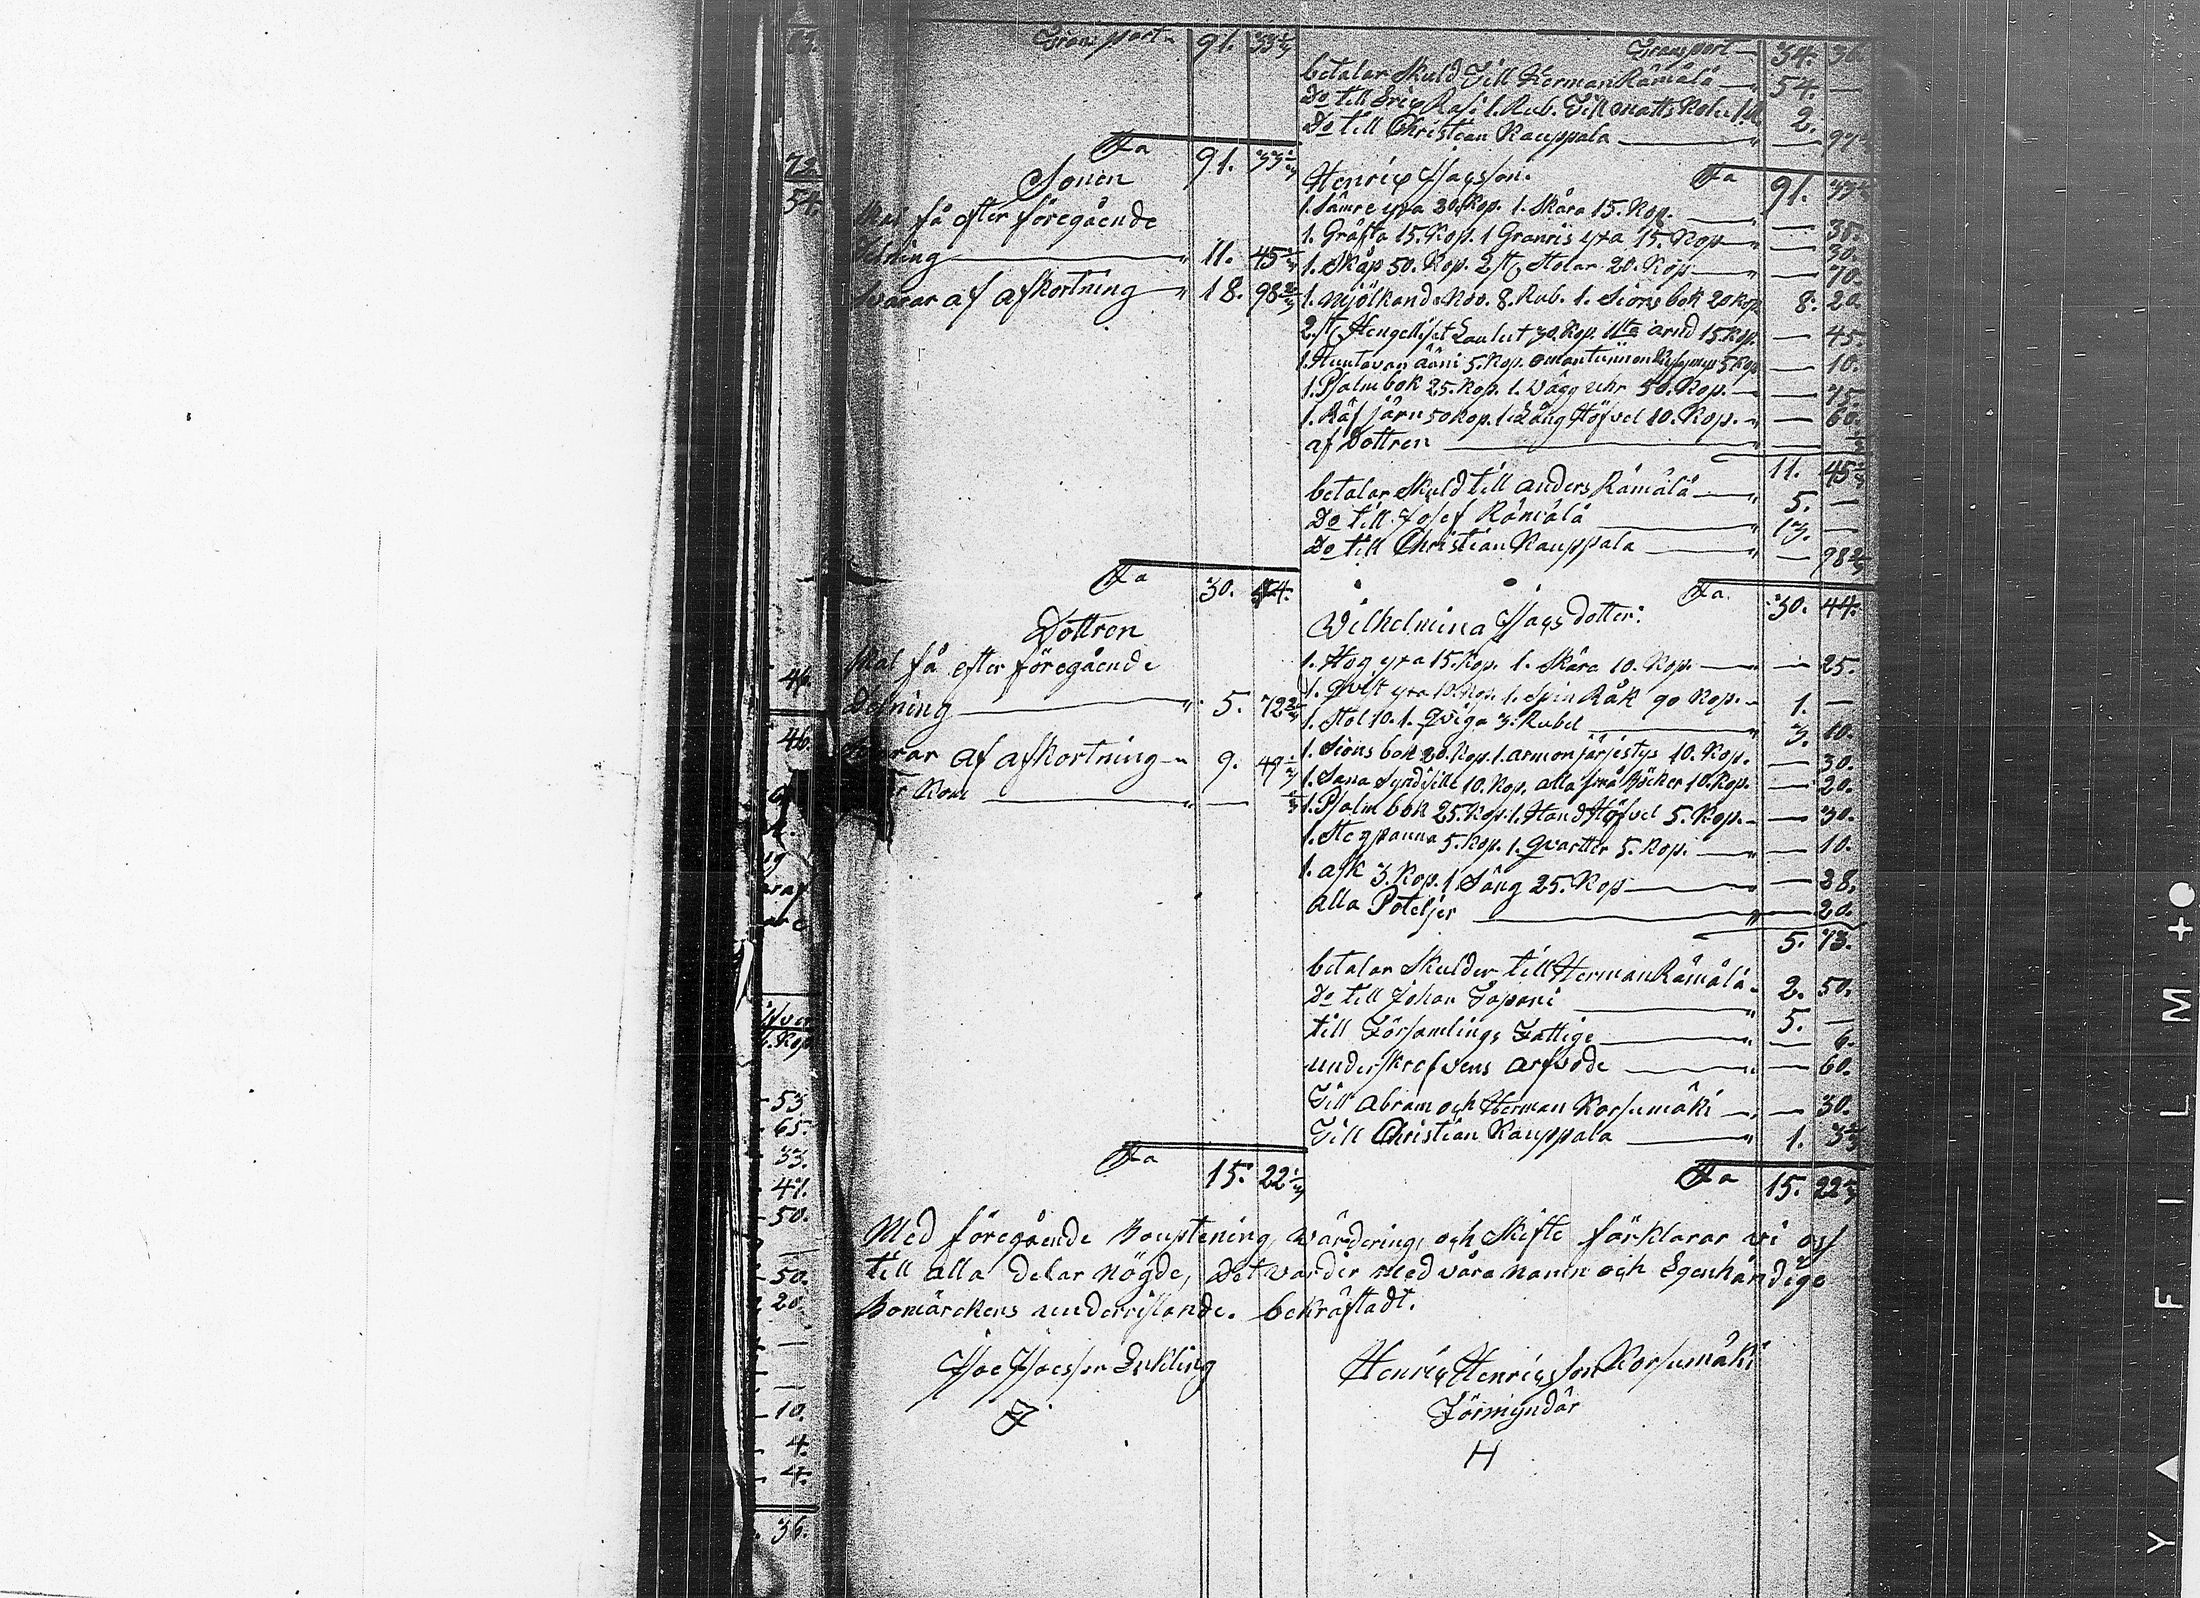 Transport 91. 33 1/3
Sa 91. 33 1/3
Sonen
skal få efter föregående
Delning 11. 45 1/3
swarar af afkortning 18. 98 2/3
Sa 30. 44.
Dottren
skal få efter föregående
Delning 5. 72 2/3
swarar af afkortning 9. 49 1/3
Sa 15. 22 1/3
Transport 34. 36
betalar skuld Till Herman Rämälä 54. —
Do till Christian Kauppala — 97
Sa 91. 33 1/3
Henrig Isacsson.
1. sämre yxa 20. Kop. 1. skära 15. Kop. — 35.
1. Gräfta 15. Kop. 1 Granris yxa 15. Kop — 30.
1. Skåp 50. Kop. 2 st. Stolar 20. Kop — 70.
1. Mjölkande Koo. 8. Rub. 1. Sions bok 20 Kop 8. 20.
2. st. Hengelliset Laulut 30. Kop. 15 Kop. — 45.
1. Huutavan ääni 5. Kop. 5 Kop — 10.
1. Psalmbok 25. Kop. 1. Wägg uhr 50. Kop. — 75.
1. Räf järn 50 Kop. 1. Lång Höfvel 10. Kop. — 60.
af Dottren
11. 45 1/3
betalar skuld till anders Rämälä 5. —
Do till Josef Rämälä 13. —
Do till Christian Kauppala — 98 2/3
Sa. 30. 44.
Wilhelmina Isacsdotter:
1. Hog yxa 15. Kop. 1. skära 10. Kop. — 25.
1. qvist yxa 10 Kop. 1. spin Råk 90 Kop. 1. —
1. Stol 10. 1. Qviga 3. Rubel 3. 10.
1. Sions bok 20. Kop. 1. armonjärjestys 10. Kop. — 30.
10. Kop. alla små Böcker 10. Kop. — 20.
1. Psalmbok 25. Kop. 1. Hand Höfvel 5. Kop. — 30.
1. Stegpanna 5. Kop. 1. Qvarter 5. Kop. — 10.
1. ask 3. Kop. 1 Säng 25. Kop — 28.
alla Poteljer — 20.
5. 73.
betalar skulder till Herman Rämälä 2. 50.
Do till Johan 5. —
till Församlings Fattige — 6.
underskrefvens arfvode — 60.
Till Abram och Herman Korsumäki — 30.
Till Christian Kauppala 1. 3 1/3
Sa 15. 22 1/3
Med föregående Bouptening, wärdering, och Skifte förklarar vi oss
till alla delar nögde, Det varder med våra namn och Egenhändige
Bomärckens underristande. bekräftadt.
Isac Isacsson
Henrig Henrigsson Korsumäki
Förmyndar
H
73.
54.
46.
46.
53
65.
33.
47.
50.
50.
20.
10.
4.
4.
36.
YA FILM